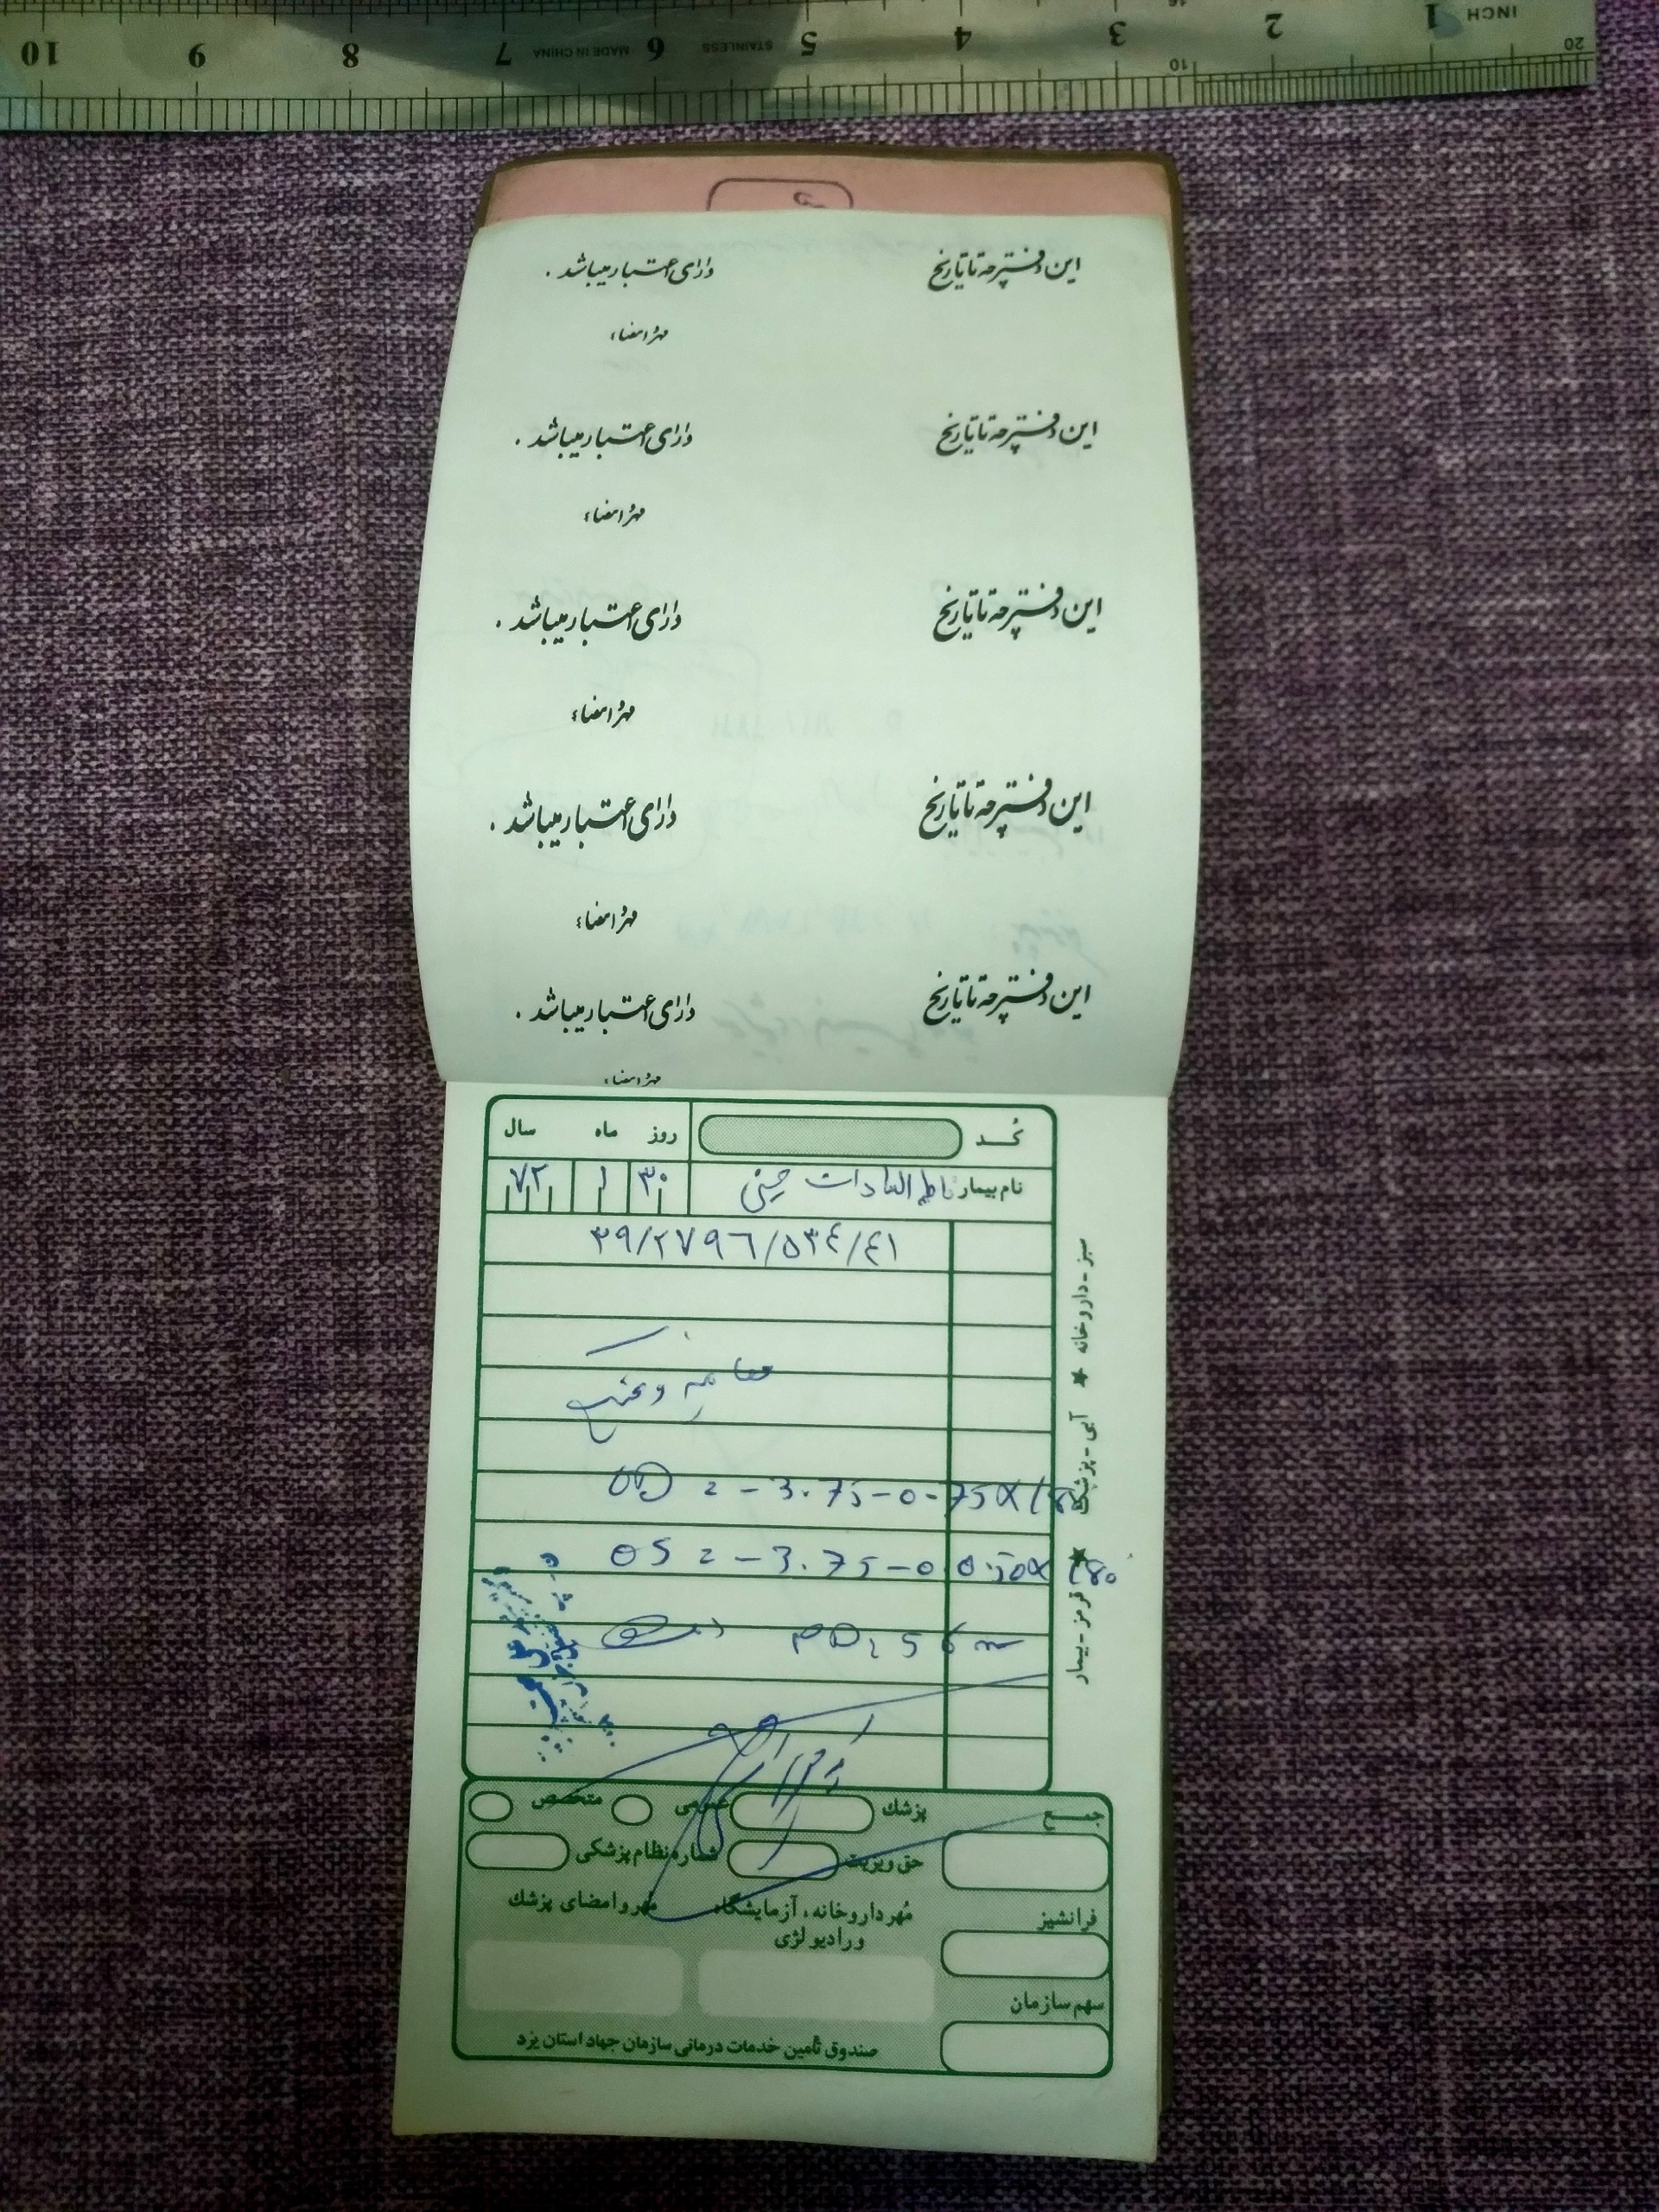 INCH 1 2 3 4 5 6 7 8 9 10
STAINLESS MADE IN CHINA
10 20
این دفترچه تا تاریخ دارای اعتبار میباشد .
مهر و امضاء
این دفترچه تا تاریخ دارای اعتبار میباشد .
مهر و امضاء
این دفترچه تا تاریخ دارای اعتبار میباشد .
مهر و امضاء
این دفترچه تا تاریخ دارای اعتبار میباشد .
مهر و امضاء
این دفترچه تا تاریخ دارای اعتبار میباشد .
مهر و امضاء
کُد روز ماه سال
نام بیمار السادات حسینی ۳۰ ۱ ۷۲
۳۹/۲۷۹۶/۵۳۴/۴۱
معاینه و عینک
OD = -3.75-0.75X180
OS = -3.75-0.50X180
PD: 56
سبز - داروخانه ★ آبی - پزشک ★ قرمز - بیمار
جمع
پزشک عمومی متخصص
حق ویزیت شماره نظام پزشکی
فرانشیز
مُهر داروخانه، آزمایشگاه و رادیولژی
مُهر و امضای پزشک
سهم سازمان
صندوق تأمین خدمات درمانی سازمان جهاد استان یزد